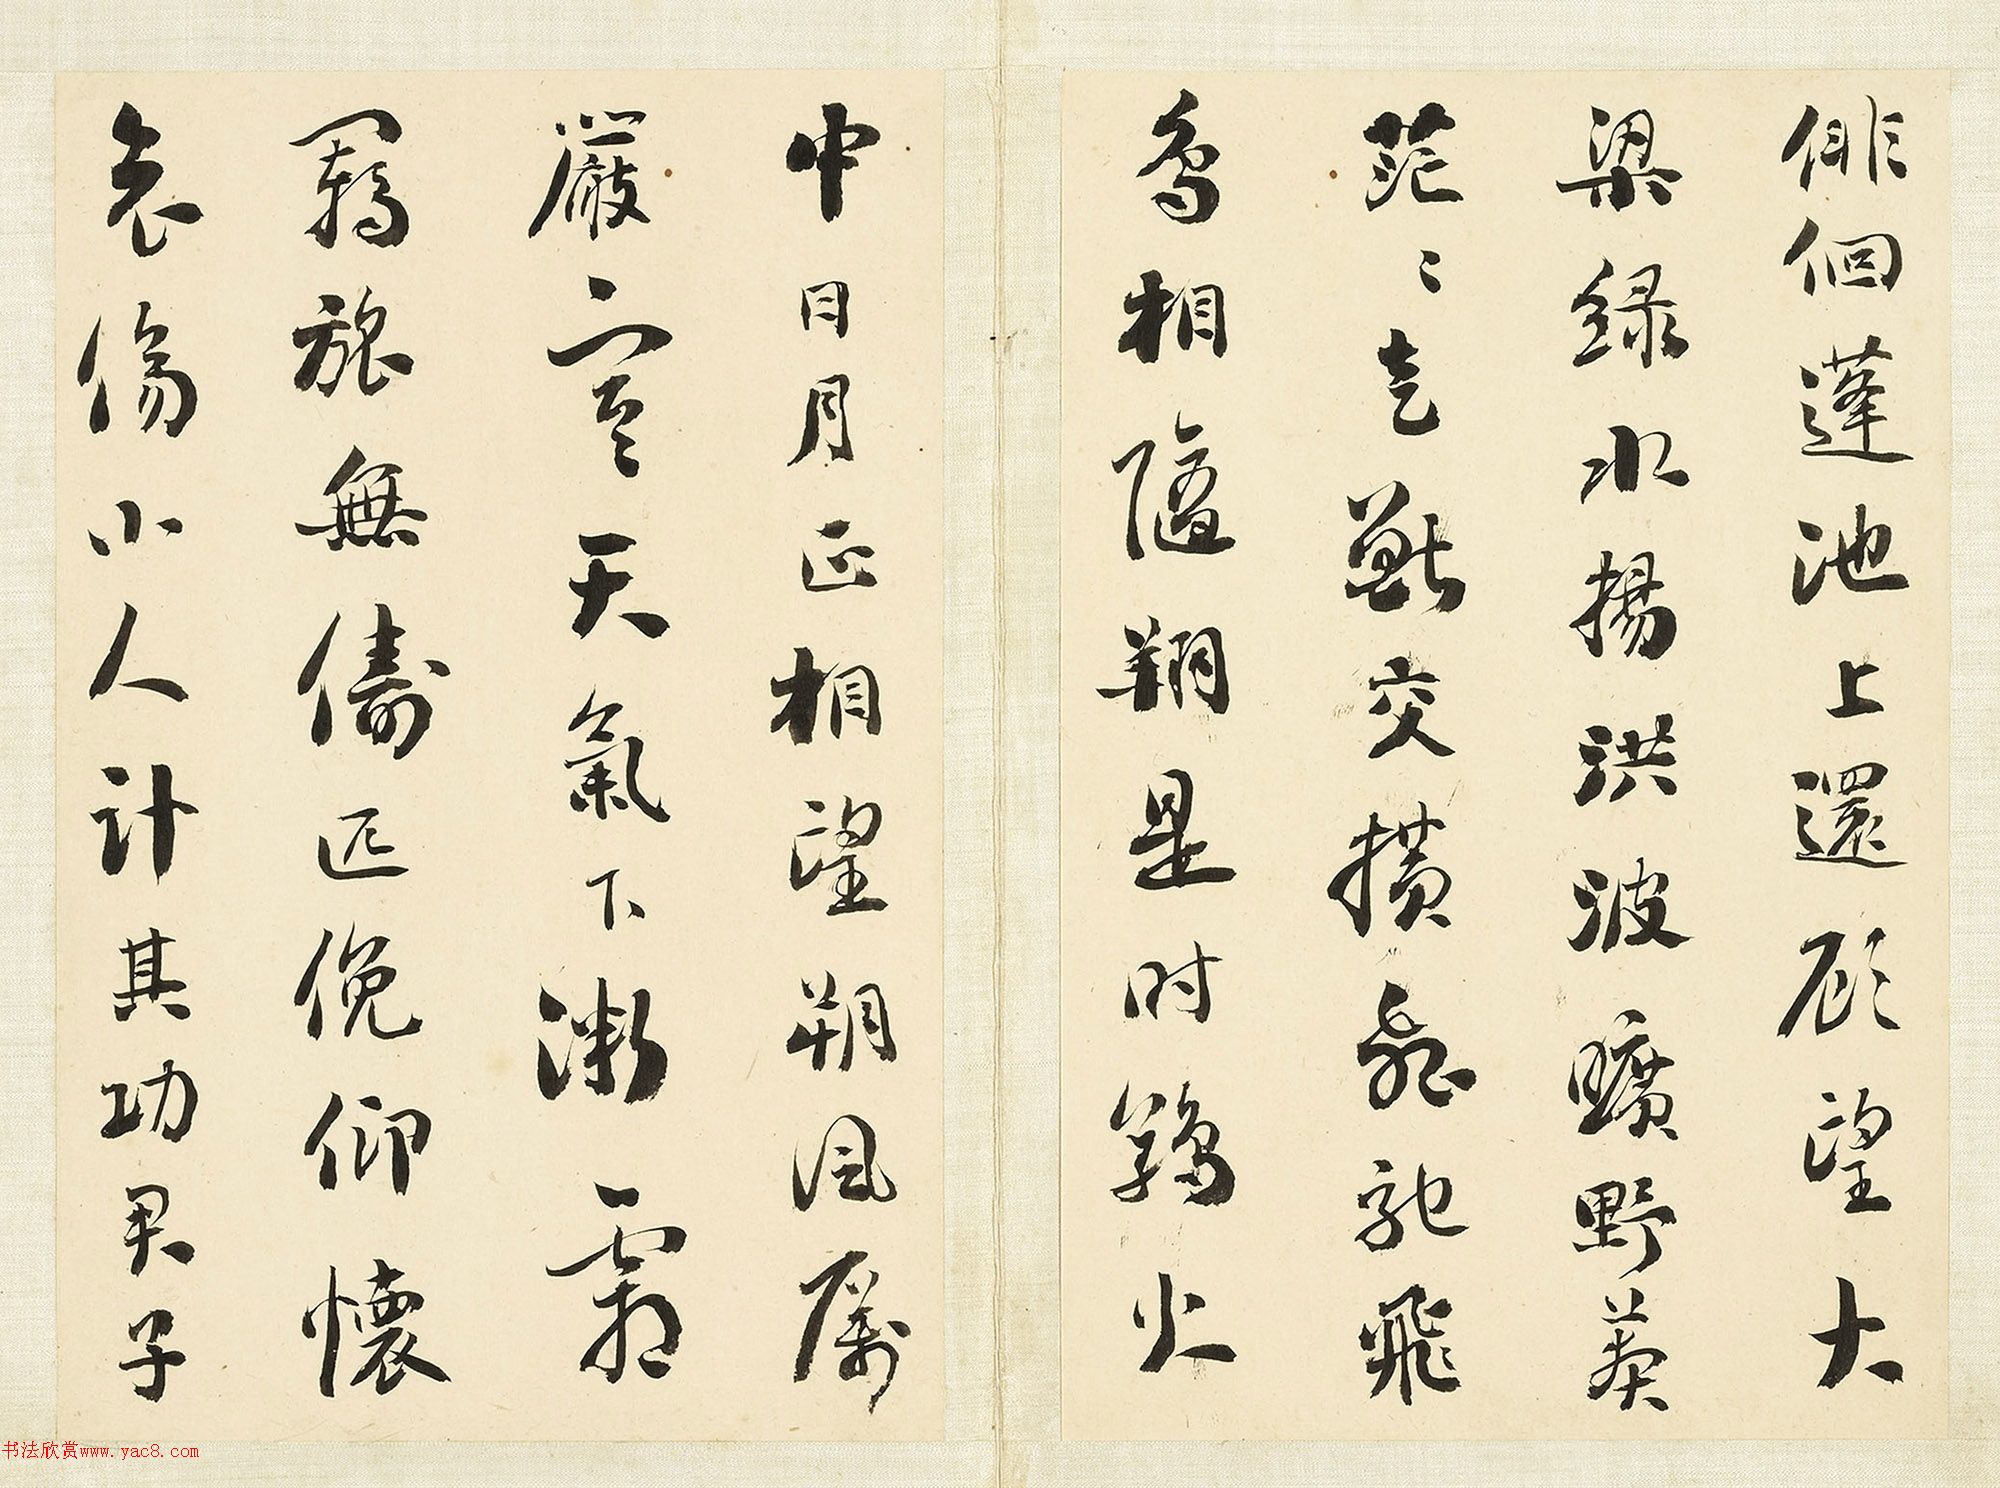 俳佪蓬池上還顾望大
梁绿水揚洪波曠野莽
茫〻走獸交撗
飛
鸟相隨翔是时鶉火
中日月正相望朔风厲
嚴寒天氣下微霜
羇旅無儔匹俛仰懷
哀傷小人計其功君子
书法欣赏www.yac8.com